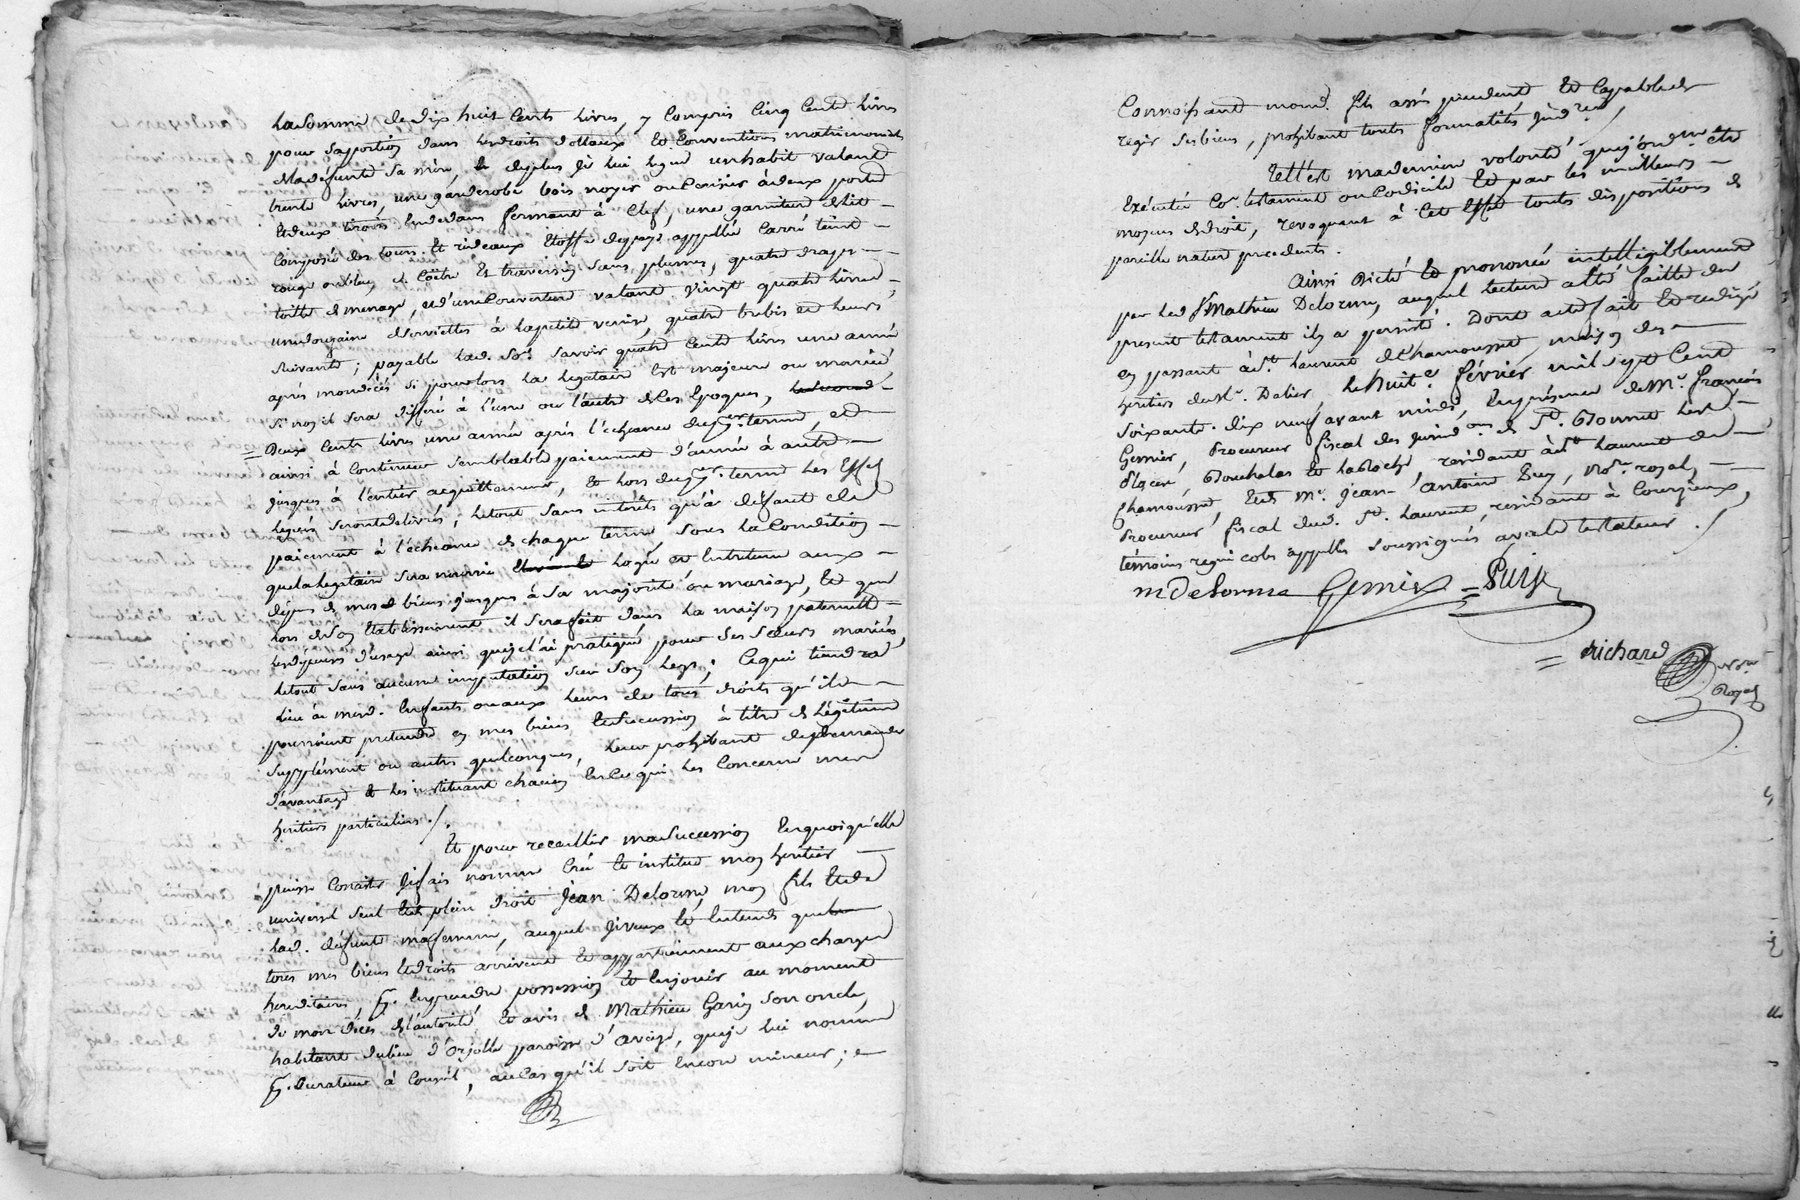 La somme de dix huit Cents livres, y Compris Cinq Cents livres
pour sa portion dans les droits dottaux Et Conventions matrimoniales
de la defunte sa mère, & de plus je lui legue un habit valant
trente livres, une garderobe bois noyer ou Cerisier à deux portes
Et deux tiroirs En dedans fermant à Clef, une garniture de lit -
Composée des tours Et rideaux Etoffe du pays appellée Carré teint -
rouge ou bleu, d. Coëtre Et traversin sans plumes, quatre draps -
toille de menage, & d'une Couverture valant vingt quatre livres,
une douzaine de serviettes à la petite venise, quatre brebis Et leurs
suivants; payable lad. So.e Savoir quatre Cents livres une année
après mon décès si pour lors la legataire Est majeure ou mariée,
Si non il sera differé à l'une ou l'autre de Ces Epoques,
= Deux Cents livres une année après l'echeance du p.er terme, et
ainsi à Continuer semblable paiement d'année à autre -
jusques à l'entier acquittement, Et lors dud. p.er terme les Effets
legués seront delivrés; le tout sans interêts qu'à défaut de
paiement à l'écheance de chaque terme, sous la Condition -
que la legataire sera nourrie logée et Entretenue aux -
dépens de mesd. biens jusques à sa majorité ou mariage, Et que
lors de son Etablissement il sera fait dans la maison paternelle -
les dépenses d'usage ainsi que je l'ai pratiqué pour ses sœurs mariées,
le tout sans aucune imputation sur son legs; Ce qui tiendra
lieu à mesd. Enfants ou aux leurs de tous droits qu'ils -
pourroient pretendre en mes biens Et succession à titre de légitime
supplément ou autres quelconques, leur prohibant de demander
d'avantage & les instituant chacun En Ce qui les Concerne mes
heritiers particuliers ./.
Et pour recueillir ma succession En quoi qu'elle
puisse Consister je fais nomme Crée Et institue mon heritier -
universel seul Et de plein droit Jean Delorme, mon fils Et de
lad. défunte ma femme, auquel je veux Et Entends que
tous mes biens Et droits arrivent Et appartiennent aux charges
hereditaires, p.r En prendre possession Et En jouir au moment
de mon décès de l'autorité Et avis de Mathieu Garin son oncle,
habitant du lieu d'Orjolle paroisse d'aveize, que je lui nomme
p.r Curateur à Conseil, au Cas qu'il soit Encore mineur; -
Connoissant mond. fils assés prudent Et Capable de
regir ses biens, prohibant touts formalités jud.res /
Telle Est ma derniere volonté que j'ord.ne être
Exécutée Co.e testament ou Codicile Et par les meilleurs -
moyens de droit, revoquant à Cet Effet touts dispositions de
pareille nature precedents.
Ainsi dicté Et prononcé intelligiblement
par led. S.r Mathieu Delorme, auquel lecture a Eté faitte du
present testament il y a persisté. Dont acte fait Et redigé
en passant à S.t laurent de Chamousset, maison des -
heritiers du S.r Dalier, le huit.e février mil sept Cent
soixante-dix neuf avant midi, En présence de M.e françois
Gernier, Procureur fiscal des jurid.ons de S.t Bonnet les -
places, Bouchalas Et la Roche, residant à S.t laurent de -
Chamousset, Et de M.e jean-Antoine Puy, No.re royal -
Procureur fiscal dud. S.t laurent, residant à Courzieux,
témoins regnicoles appellés soussignés avec le testateur ./
m Delorme Gernier = Puy
= Richard N.re
Royal